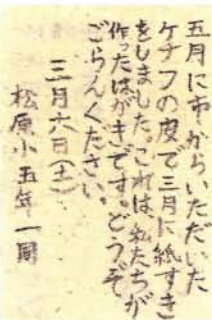 五月に市からいただいた
ケナフの皮で三月に紙すき
をしました。これは私たちが
作ったはがきです。どうぞ
ごらんください。
三月六日(土)
松原小五年一同